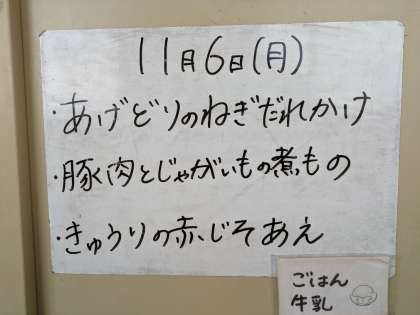 11月6日(月)
・あげどりのねぎだれかけ
・豚肉とじゃがいもの煮もの
・きゅうりの赤じそあえ
ごはん
牛乳